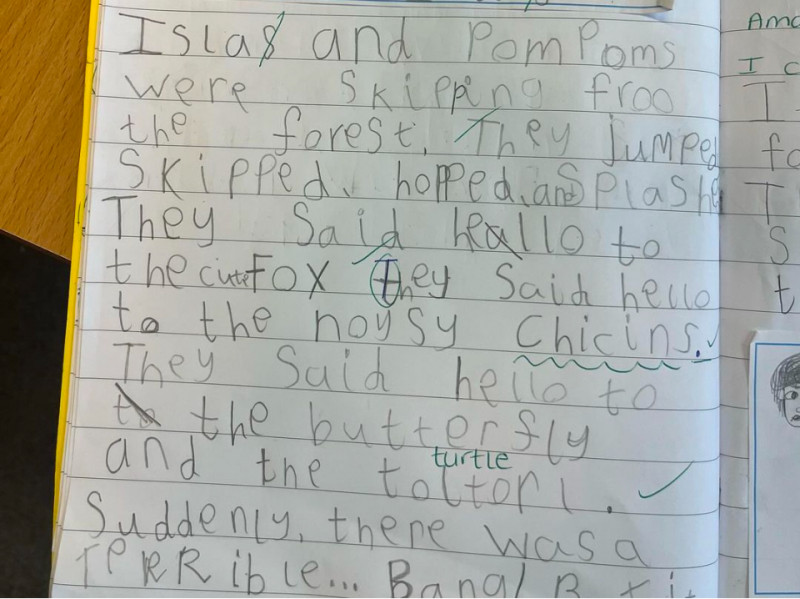 Islas and PomPoms
were skipping froo
the forest. They jumped
skipped, hopped, and Splashe
They Said hallo to
the cute Fox They Said hello
to the noysy Chicins.
They Said hello to
to the butterfly
turtle
and the toltorl.
Suddenly, there was a
TeRRible... Bang!
Ama
I c
I
fo
T
s
t